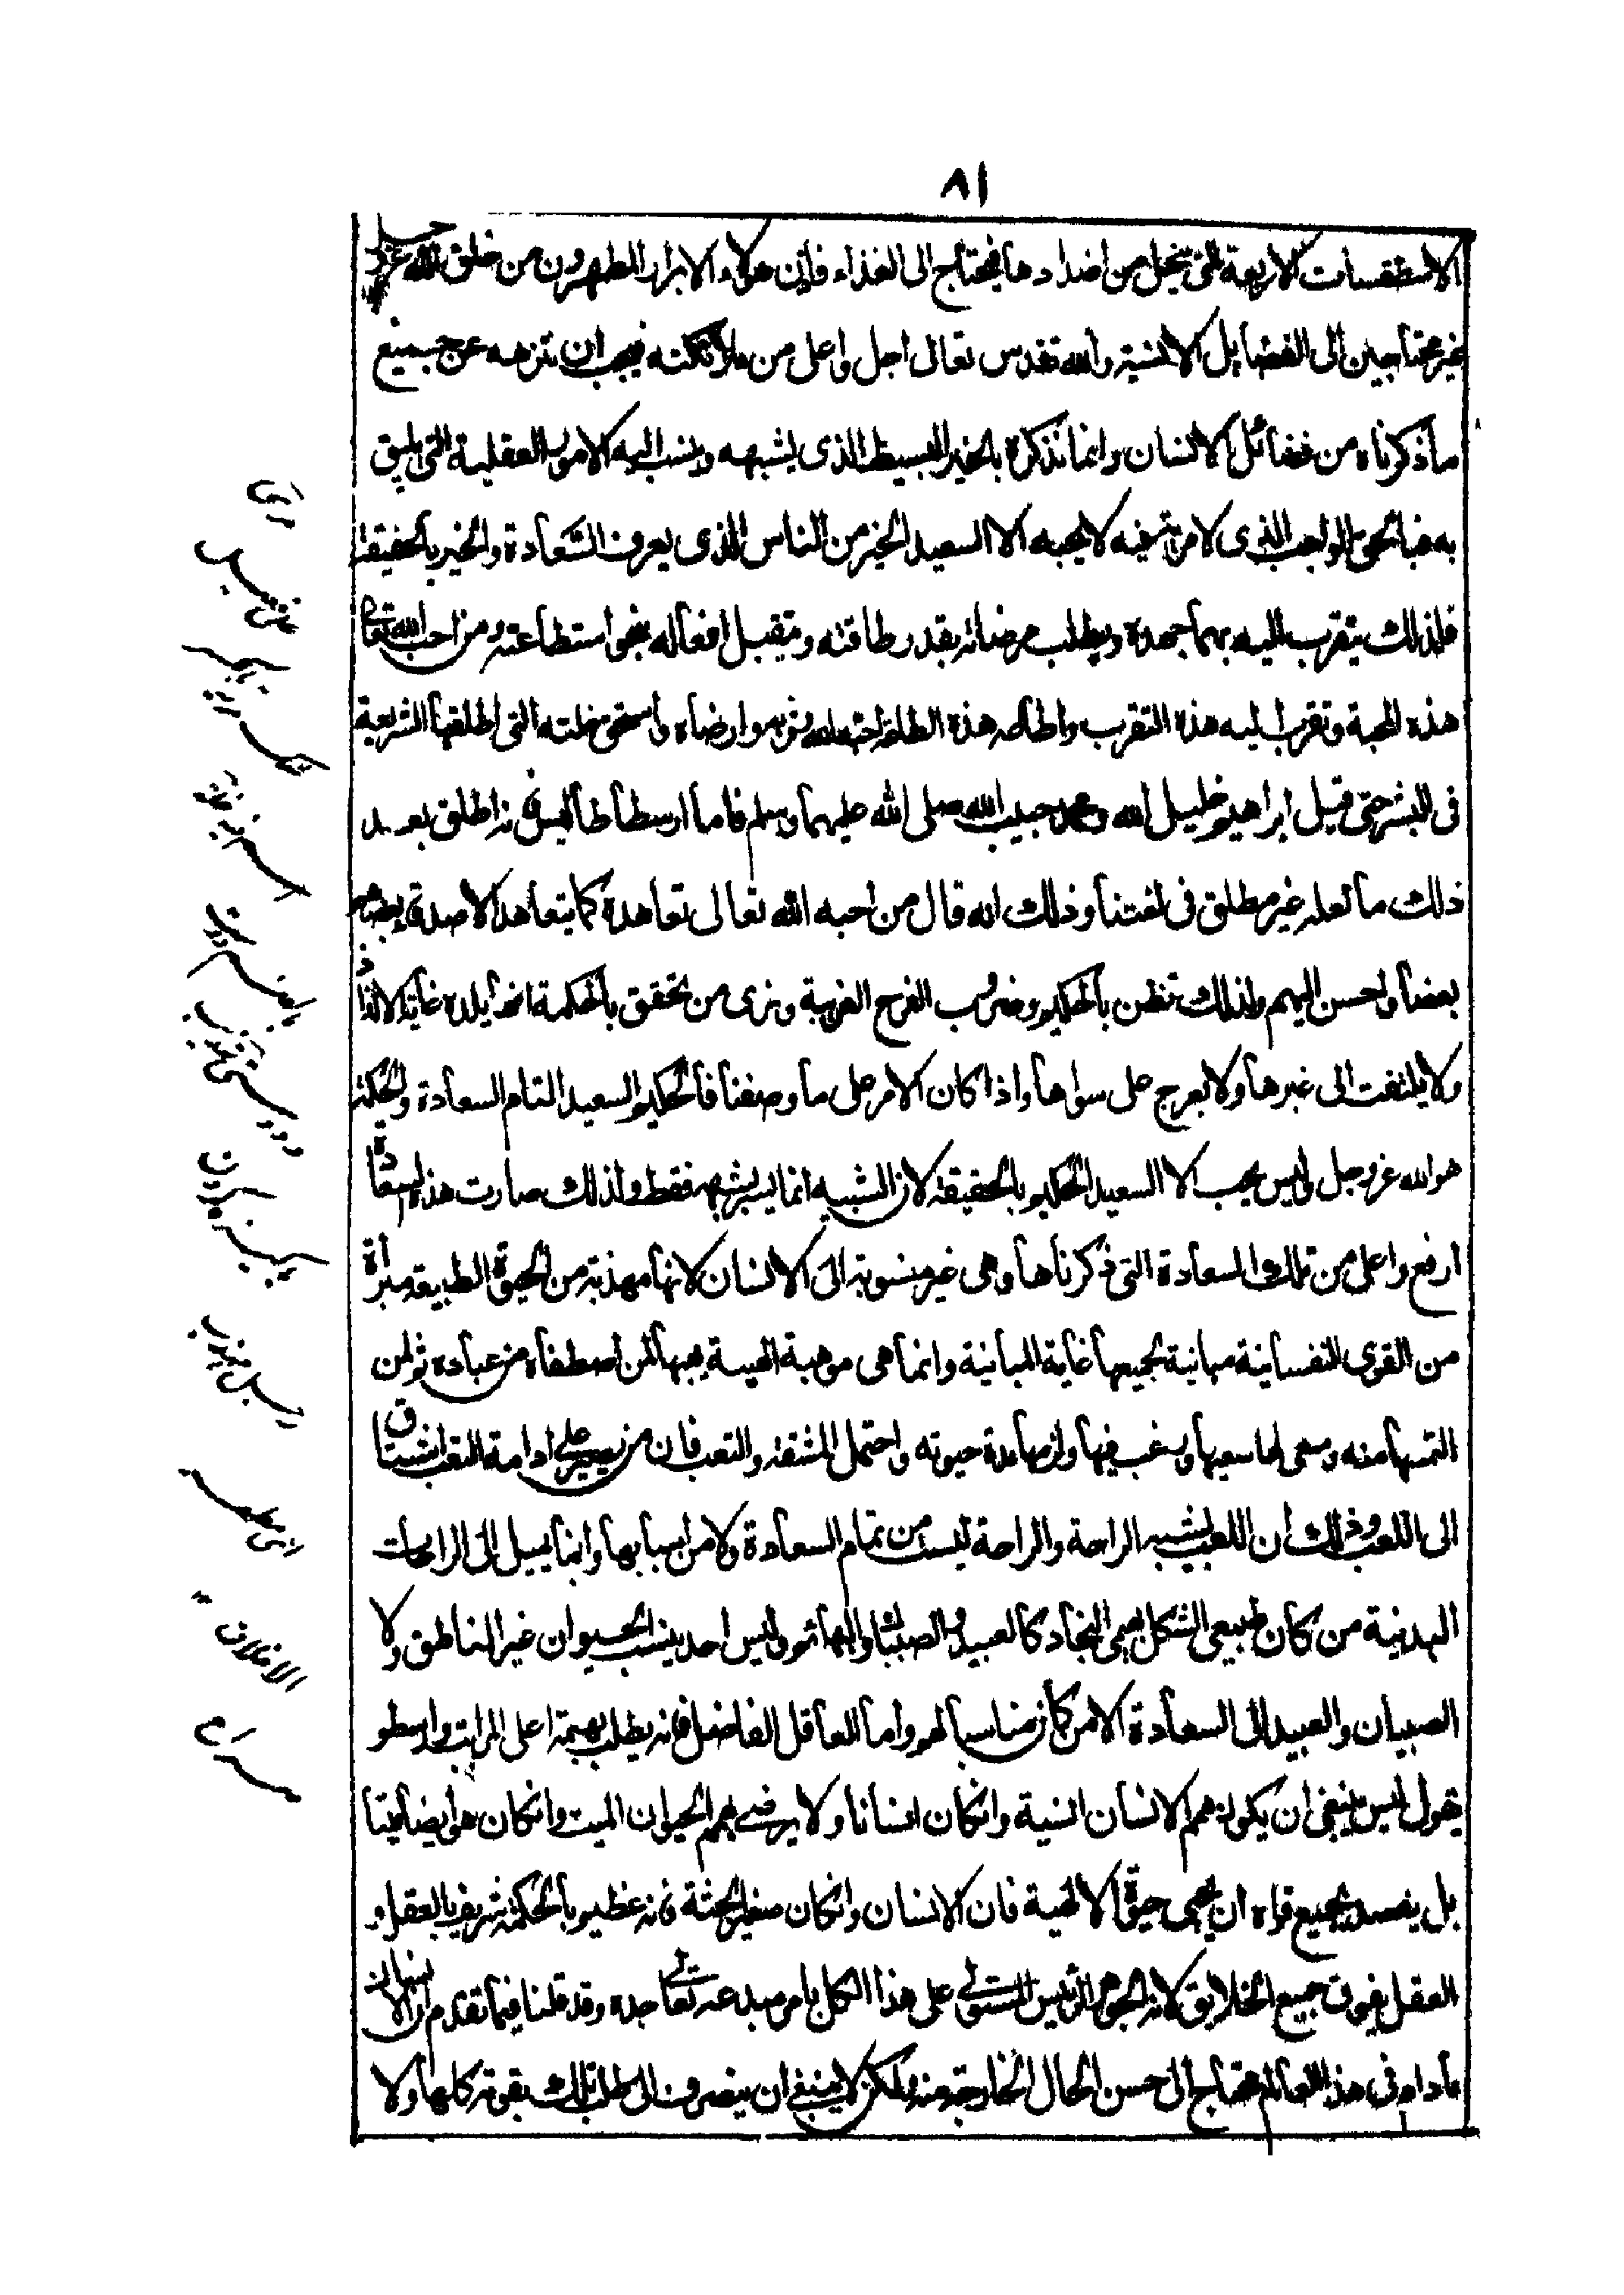 ٨١
الاسطقسات الاربعة التى تتحلل من اضدادها فيحتاج الى الغذاء فاذن هولاء الابرار المطهرون من خلق الله عز وجل
غير محتاجين الى الفضايل الانسية والله تقدس تعالى اجل واعلى من ملائكته فيجب ان ننزهه عن جميع
ما ذكرناه من فضائل الانسان وانما نذكره بالخير البسيط الذى يشبهه وينسب اليه الامور العقلية التى يليق
به فبالحق الواجب الذى لا مرية فيه لا يحبه الا السعيد الخير من الناس الذى يعرف السعادة والخير بالحقيقة
فلذلك يتقرب اليه بهما جهده ويطلب مرضاته بقدر طاقته ويتقبل افعاله بنحو استطاعته ومن احب الله تعالى
هذه المحبة وتقرب اليه هذه التقرب واطاعه هذه الطاعة احبه الله وقربه وارضاه واستحق خلته التى اطلقتها الشريعة
فى البشر حتى قيل ابراهيم خليل الله ومحمد حبيب الله صلى الله عليهما وسلم فاما ارسطاطاليس فانه اطلق بعد
ذلك ما لعله غير مطلق فى لغتنا وذلك انه قال من احبه الله تعالى تعاهده كما يتعاهد الاصدقاء بعضهم
بعضا واحسن اليهم ولذلك تظن بالحكيم وضروب الفرح الغريبة ونرى من تحقق بالحكمة انها يلذه غاية الالذاذ
ولا يلتفت الى غيرها ولا يعرج على سواها واذا كان الامر على ما وصفنا فالحكيم السعيد التام السعادة والحكمة
هو الله عز وجل وليس يحب الا السعيد الحكيم بالحقيقة لان الشبيه انما يسر بشبيهه فقط ولذلك صارت هذه السعادة
ارفع واعلى من تلك السعادة التى ذكرناها وهى غير منسوبة الى الانسان لانها مهذبة من الحيوة الطبيعة مبرأة
من القوى النفسانية مباينة لجميعها غاية المباينة وانما هى موهبة الهية يهبها لمن اصطفاه من عباده ثم لمن
التمسها منه وسعى لها سعيها ورغب فيها ولزمها مدة حيوته واحتمل المشقة والتعب فان من يصبر على ادامة التعب اشتاق
الى اللعب وذلك ان اللعب يشبه الراحة والراحة ليست من تمام السعادة ولا من اسبابها وانما يميل الى الراحات
البدنية من كان طبيعى الشكل بهيمى النجاد كالعبيد والصبيان والبهائم وليس احد ينسب الحيوان غير الناطق ولا
الصبيان والعبيد الى السعادة الا من كان مناسبا لهم واما العاقل الفاضل فانه يطلب بهمته اعلى المراتب وارسطو
يقول ليس ينبغى ان يكون همم الانسان انسية وان كان انسانا ولا يرضى بهمم الحيوان الميت وان كان هو ايضا ميتا
بل يقصد بجميع قواه ان يحيى حيوة الالهية فان الانسان وان كان صغير الجثة فانه عظيم بالحكمة شريف بالعقل و
العقل يفوق جميع الخلايق لانه الجوهر الرئيس المستولى على هذا الكل بامر مبدعه تعالى جده وقد قلنا فيما تقدم ان الانسان
مادام فى هذا العالم محتاج الى حسن الحال الخارجة منه ولكن لا ينبغى ان ينصرف الى طلب ذلك بقوته كلها ولا